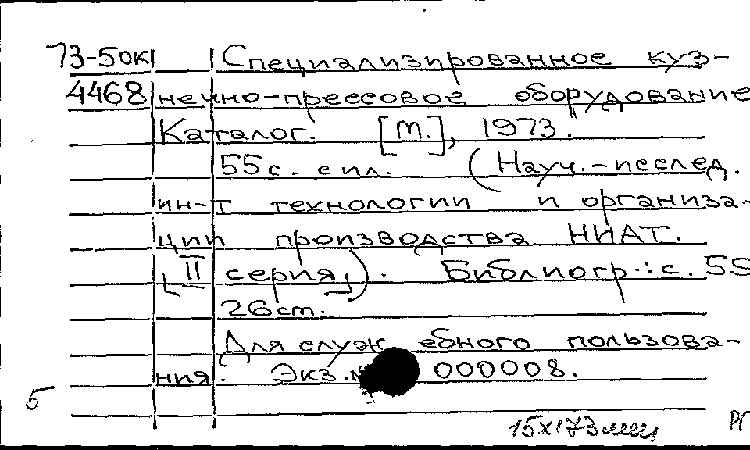 73-50к Специализированное куз-
4468 нечно-прессовое оборудование
Каталог. [М.], 1973.
55с. с ил. (Науч.-исслед.
ин-т технологии и организа-
ции производства НИАТ.
[II серия]). Библиогр.: с. 55
26см.
Для служебного пользова-
ния. Экз.№ 000008.
5
15х173мм